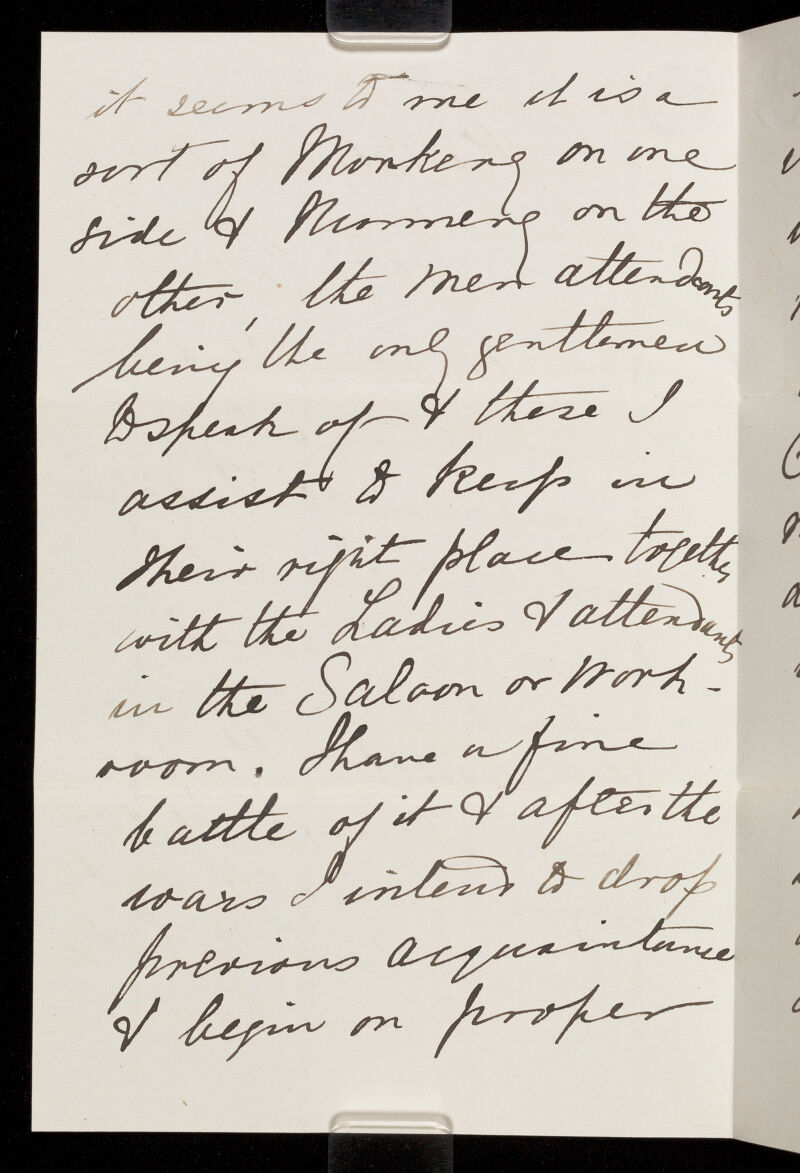 it seems to me it is a
sort of Monkery on one
side & Nunnery on the
other, the men attendants
being the only gentlemen
to speak of & these I
assist to keep in
their right place together
with the Ladies & attendants
in the Saloon or Work-
room. I have a fine
battle of it & after the
wars I intend to drop
previous acquaintance
& begin on proper